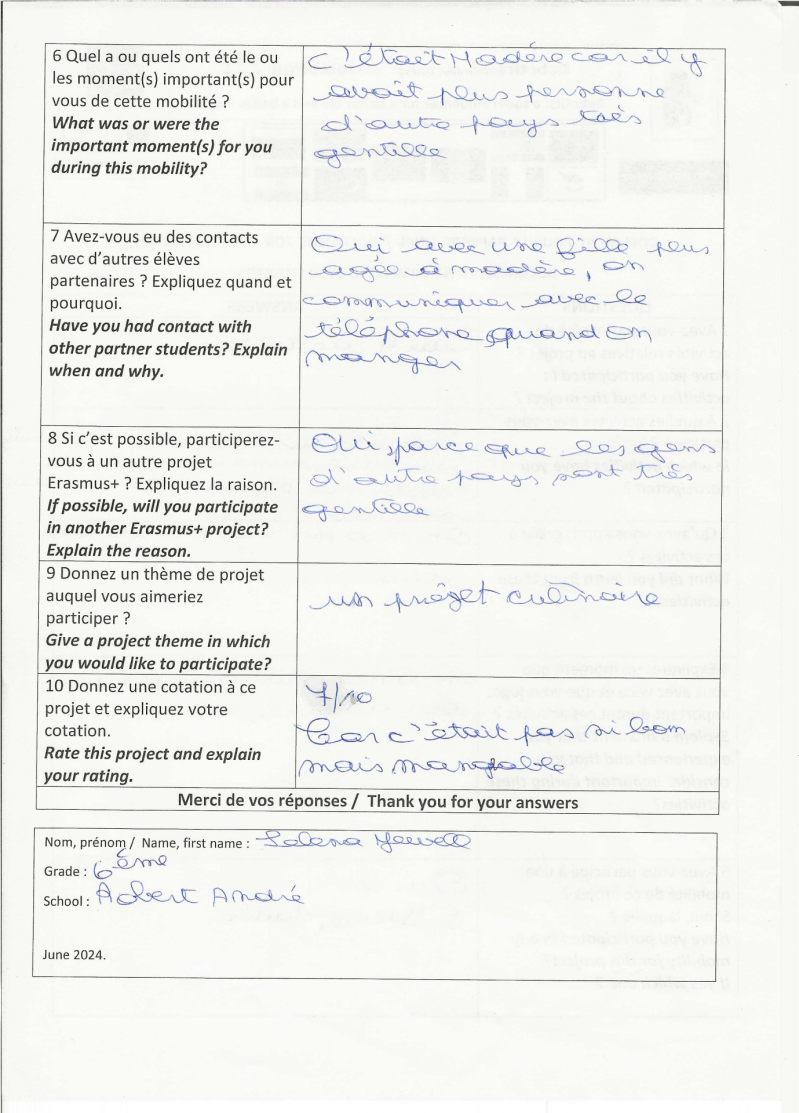 6 Quel a ou quels ont été le ou
les moment(s) important(s) pour
vous de cette mobilité ?
What was or were the
important moment(s) for you
during this mobility?
C'était Madère car il y
avait plus personne
d'autre pays très
gentille
7 Avez-vous eu des contacts
avec d'autres élèves
partenaires ? Expliquez quand et
pourquoi.
Have you had contact with
other partner students? Explain
when and why.
Oui avec une fille plus
agée à madère, on
communiquer avec le
téléphone quand on
manger
8 Si c'est possible, participerez-
vous à un autre projet
Erasmus+ ? Expliquez la raison.
If possible, will you participate
in another Erasmus+ project?
Explain the reason.
Oui parce que les gens
d'autre pays sont très
gentille
9 Donnez un thème de projet
auquel vous aimeriez
participer ?
Give a project theme in which
you would like to participate?
un projet culinaire
10 Donnez une cotation à ce
projet et expliquez votre
cotation.
Rate this project and explain
your rating.
7/10
Car c'était pas si bom
mais mangable
Merci de vos réponses / Thank you for your answers
Nom, prénom / Name, first name :
Grade : 6ème
School : Robert André
June 2024.